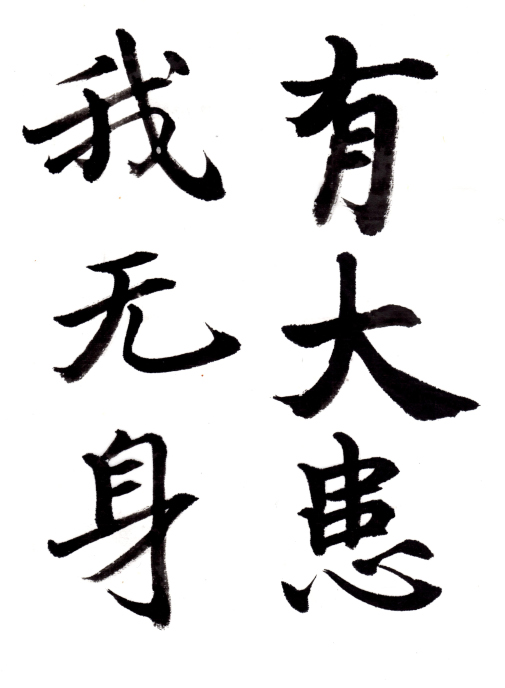 有大患
我无身